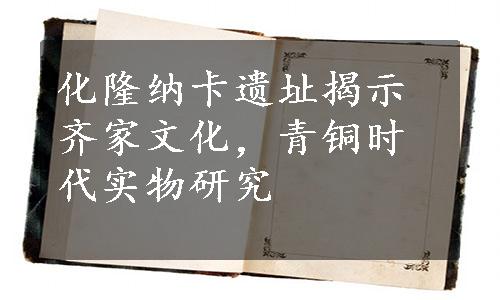 化隆纳卡遗址揭示
齐家文化，青铜时
代实物研究